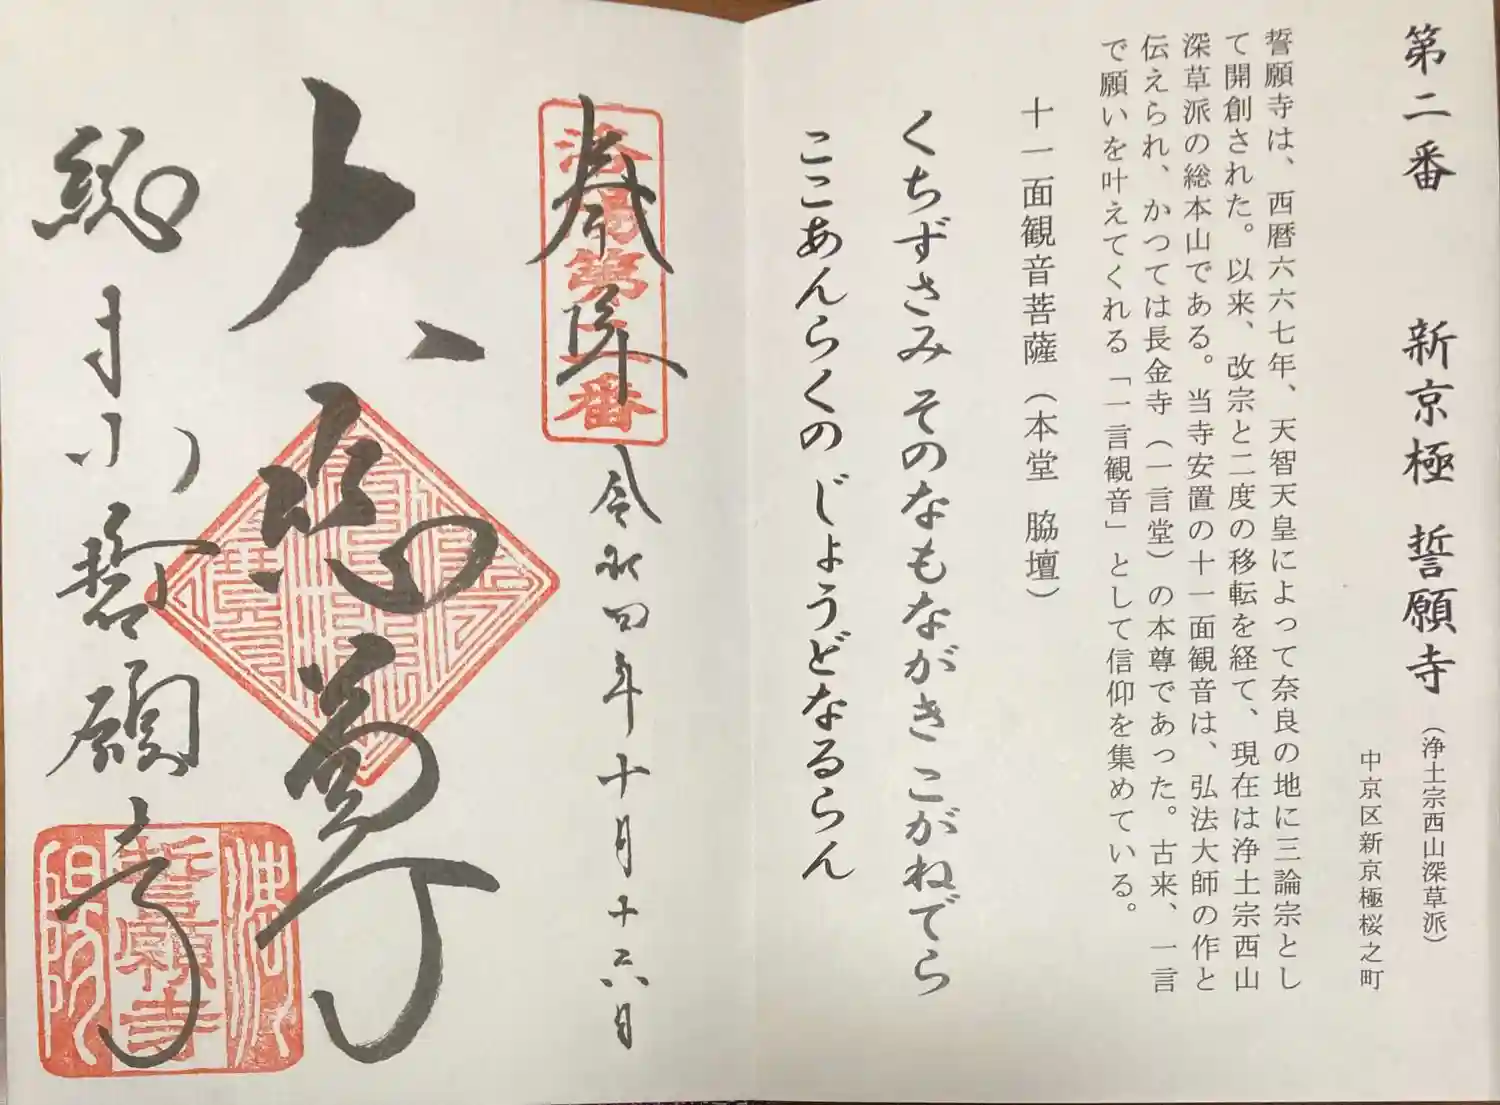 第二番 新京極 誓願寺（浄土宗西山深草派）
中京区新京極桜之町
誓願寺は、西暦六六七年、天智天皇によって奈良の地に三論宗とし
て開創された。以来、改宗と二度の移転を経て、現在は浄土宗西山
深草派の総本山である。当寺安置の十一面観音は、弘法大師の作と
伝えられ、かつては長金寺（一言堂）の本尊であった。古来、一言
で願いを叶えてくれる「一言観音」として信仰を集めている。
十一面観音菩薩（本堂 脇壇）
くちずさみ そのなもながき こがねでら
ここあんらくの じょうどなるらん
奉拝
洛陽第二番
令和四年十月十六日
大悲尊
総本山誓願寺
誓願寺